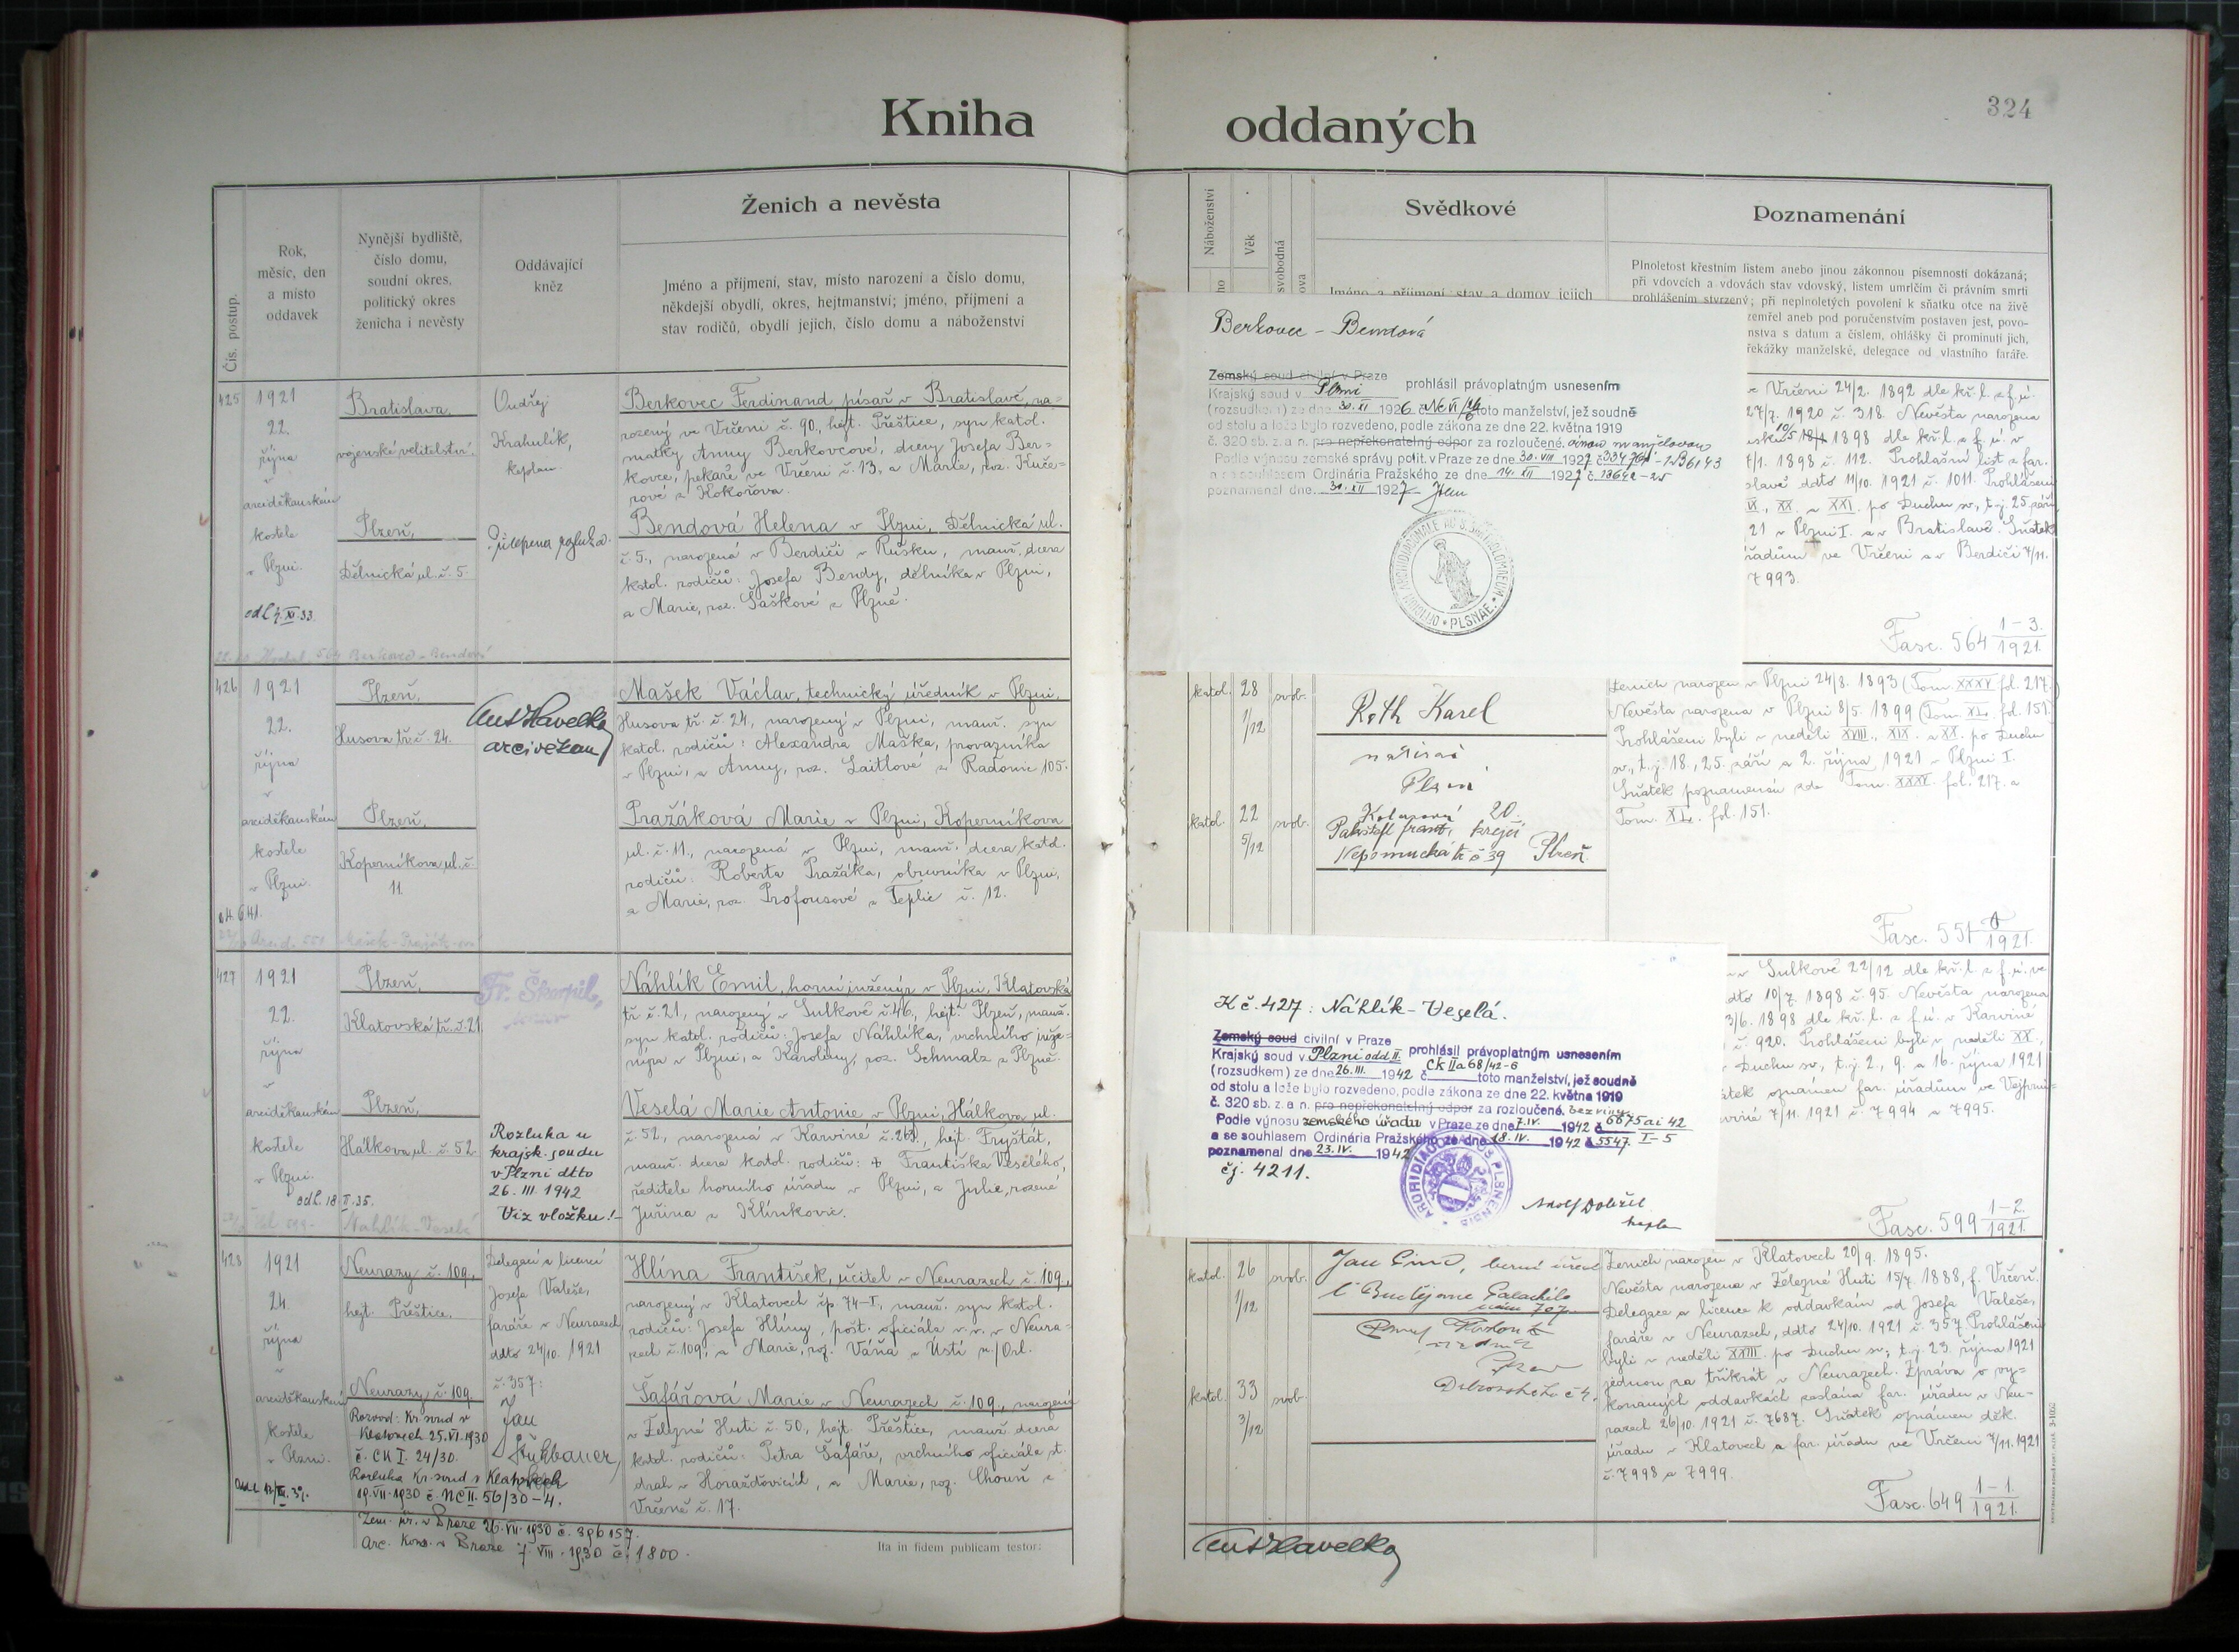 Kniha
oddaných
324
Čís. postup.
Rok,
měsíc, den
a místo
oddavek
Nynější bydliště,
číslo domu,
soudní okres,
politický okres
ženicha i nevěsty
Oddávající
kněz
Ženich a nevěsta
Jméno a příjmení, stav, místo narození a číslo domu,
někdejší obydlí, okres, hejtmanství; jméno, příjmení a
stav rodičů, obydlí jejich, číslo domu a náboženství
425
1921
22.
října
v
arciděkanském
kostele
v Plzni.
odl 4. XI. 33
Bratislava,
vojenské velitelství.
Plzeň,
Dělnická ul. č. 5.
Ondřej
Krahulík,
kaplan.
Berkovec Ferdinand písař v Bratislavě, na-
rozený ve Vrčeni č. 90, hejt. Přeštice, syn katol.
matky Anny Berkovcové, dcery Josefa Ber-
kovce, pekaře ve Vrčeni č. 13, a Marie, roz. Kuče-
rové z Kokořova.
Bendová Helena v Plzni, Dělnická ul.
č. 5., narozená v Berdiči v Rusku, manž. dcera
katol. rodičů: Josefa Bendy, dělníka v Plzni,
a Marie, roz. Saškové z Plzně.
426
1921
22.
října
v
arciděkanském
kostele
v Plzni.
Plzeň,
Husova tř. č. 24.
Plzeň,
Koperníkova ul. č.
11.
Ant Havelka
arciděkan
Mašek Václav, technický úředník v Plzni,
Husova tř. č. 24, narozený v Plzni, manž. syn
katol. rodičů: Alexandra Maška, provazníka
v Plzni, a Anny, roz. Laitlové z Radonic 105.
Pražáková Marie v Plzni, Koperníkova
ul. č. 11., narozená v Plzni, manž. dcera katol.
rodičů: Roberta Pražáka, obuvníka v Plzni,
a Marie, roz. Profousové z Teplic č. 12.
427
1921
22.
října
v
arciděkanském
kostele
v Plzni.
odl. 18 II. 35.
Plzeň,
Klatovská tř. č. 21
Plzeň,
Hálkova ul. č. 52
Fr. Škorpil,
Rozluka u
krajsk. soudu
v Plzni dtto
26. III. 1942
Viz vložku!
Náhlík Emil, horní inženýr v Plzni, Klatovská
tř. č. 21, narozený v Sulkově č. 46., hejt. Plzeň, manž.
syn katol. rodičů: Josefa Náhlíka, vrchního inže-
nýra v Plzni, a Karoliny, roz. Schmalz z Plzně.
Veselá Marie Antonie v Plzni, Hálkova ul.
č. 52, narozená v Karviné č. 263., hejt. Fryštát,
manž. dcera katol. rodičů: † Františka Veselého,
ředitele horního úřadu v Plzni, a Julie, rozené
Juřina z Klimkovic.
428
1921
24.
října
v
arciděkanském
kostele
v Plzni.
Neurazy č. 109,
hejt. Přeštice.
Neurazy č. 109.
Rozvod: Kr. soud v
Klatovech 25. VI. 1930
č. CK I. 24/30.
Rozluka Kr. soud v Klatovech
19. VII. 1930 č. NC II. 56/30-4.
Zem. úř. v Praze 26. VII. 1930 č. 396157.
Arc. Kons. v Praze 7 VIII. 1930 č. 1800.
Delegací a licencí
Josefa Valeše,
faráře v Neurazech
ddto 24/10. 1921
č. 357:
Jan
Hlína František, učitel v Neurazech č. 109,
narozený v Klatovech čp. 74-I., manž. syn katol.
rodičů: Josefa Hlíny, pošt. oficiála v. v. v Neura-
zech č. 109, a Marie, roz. Váňa z Ústí n./Orl.
Šafářová Marie v Neurazech č. 109., narozená
v Železné Huti č. 50, hejt. Přeštice, manž. dcera
katol. rodičů: Petra Šafáře, vrchního oficiála st.
drah v Horažďovicích, a Marie, roz. Chouň z
Vrčeně č. 17.
Ita in fidem publicam testor:
Náboženství
Věk
svobodná
Svědkové
Jméno a příjmení, stav a domov jejich
Poznamenání
Plnoletost křestním listem anebo jinou zákonnou písemností dokázaná;
při vdovcích a vdovách stav vdovský, listem úmrlčím či právním smrti
prohlášením stvrzený; při neplnoletých povolení k sňatku otce na živě
zemřel aneb pod poručenstvím postaven jest, povo-
nstva s datum a číslem, ohlášky či prominutí jich,
řekážky manželské, delegace od vlastního faráře.
Berkovec - Bendová
Zemský soud civilní v Praze
Krajský soud v Plzni prohlásil právoplatným usnesením
(rozsudkem) ze dne 30. XI 1926 toto manželství, jež soudně
od stolu a lože bylo rozvedeno, podle zákona ze dne 22. května 1919
č. 320 sb. z. a n. pro nepřekonatelný odpor za rozloučené.
Podle výnosu zemské správy polit. v Praze ze dne 30. VIII 1927
a se souhlasem Ordinária Pražského ze dne 14. XII 1927 č
poznamenal dne 31. XII 1927
PLSNAE.
ve Vrčeni 24/2. 1892 dle kř. l. z f. ú.
27/7. 1920 č. 318. Nevěsta narozena
1898 dle kř. l. z f. ú. v
7/1. 1898 č. 112. Prohlašní list z far.
slavě ddto 11/10. 1921 č. 1011. Prohlášeni
IX., XX. a XXI. po Duchu sv., t. j. 25. září,
21 v Plzni I. a v Bratislavě. Sňatek
řadům ve Vrčeni a v Berdiči 7/11.
7993.
Fasc. 564 1-3./1921.
katol.
28
1/12
svob.
katol.
22
5/12
svob.
Roth Karel
Plzni
20
krejčí
Nepomucká tř. č 39 Plzeň
Ženich narozen v Plzni 24/8. 1893 (Tom. XXXV. fol. 217.)
Nevěsta narozena v Plzni 8/5. 1899 (Tom. XL. fol. 151.)
Prohlášeni byli v neděli XVIII., XIX. a XX. po Duchu
sv., t. j. 18., 25. září a 2. října 1921 v Plzni I.
Sňatek poznamenán zde Tom. XXXV. fol. 217. a
Tom. XL. fol. 151.
Fasc. 551 1921.
K č. 427: Náhlík - Veselá.
Zemský soud civilní v Praze
Krajský soud v Plzni odd II. prohlásil právoplatným usnesením
(rozsudkem) ze dne 26. III. 1942 č Ck IIa 68/42-6 toto manželství, jež soudně
od stolu a lože bylo rozvedeno, podle zákona ze dne 22. května 1919
č. 320 sb. z. a n. pro nepřekonatelný odpor za rozloučené. bez viny
Podle výnosu zemského úřadu v Praze ze dne 7. IV. 1942 č 6675 ai 42
a se souhlasem Ordinária Pražského ze dne 18. IV. 1942 č 5547 I-5
poznamenal dne 23. IV. 1942
čj. 4211.
Adolf Dobřil
kaplan
v Sulkově 22/12 dle kř. l. z f. ú. ve
ddto 10/7. 1898 č. 95. Nevěsta narozena
3/6. 1898 dle kř. l. z f. ú. v Karviné
č. 920. Prohlášeni byli v neděli XX.,
Duchu sv., t. j. 2., 9. a 16. října 1921
átek oznámen far. úřadům ve Vejprni-
rviné 7/11. 1921 č. 7994 a 7995.
Fasc. 599 1-2./1921.
katol.
26
1/12
svob.
katol.
33
3/12
svob.
Jan
č Budějovice
nám 707
Plzeň
Ženich narozen v Klatovech 20/9. 1895.
Nevěsta narozena v Železné Huti 15/7. 1888, f. Vrčeň.
Delegace a licence k oddavkám od Josefa Valeše,
faráře v Neurazech, ddto 24/10. 1921 č. 357. Prohlášeni
byli v neděli XXIII. po Duchu sv., t. j. 23. října 1921
jednou za třikrát v Neurazech. Zpráva o vy-
konaných oddavkách zaslána far. úřadu v Neu-
razech 26/10. 1921 č. 7687. Sňatek oznámen děk.
úřadu v Klatovech a far. úřadu ve Vrčeni 7/11. 1921
č. 7998 a 7999.
Fasc. 649 1-1./1921.
Ant Havelka